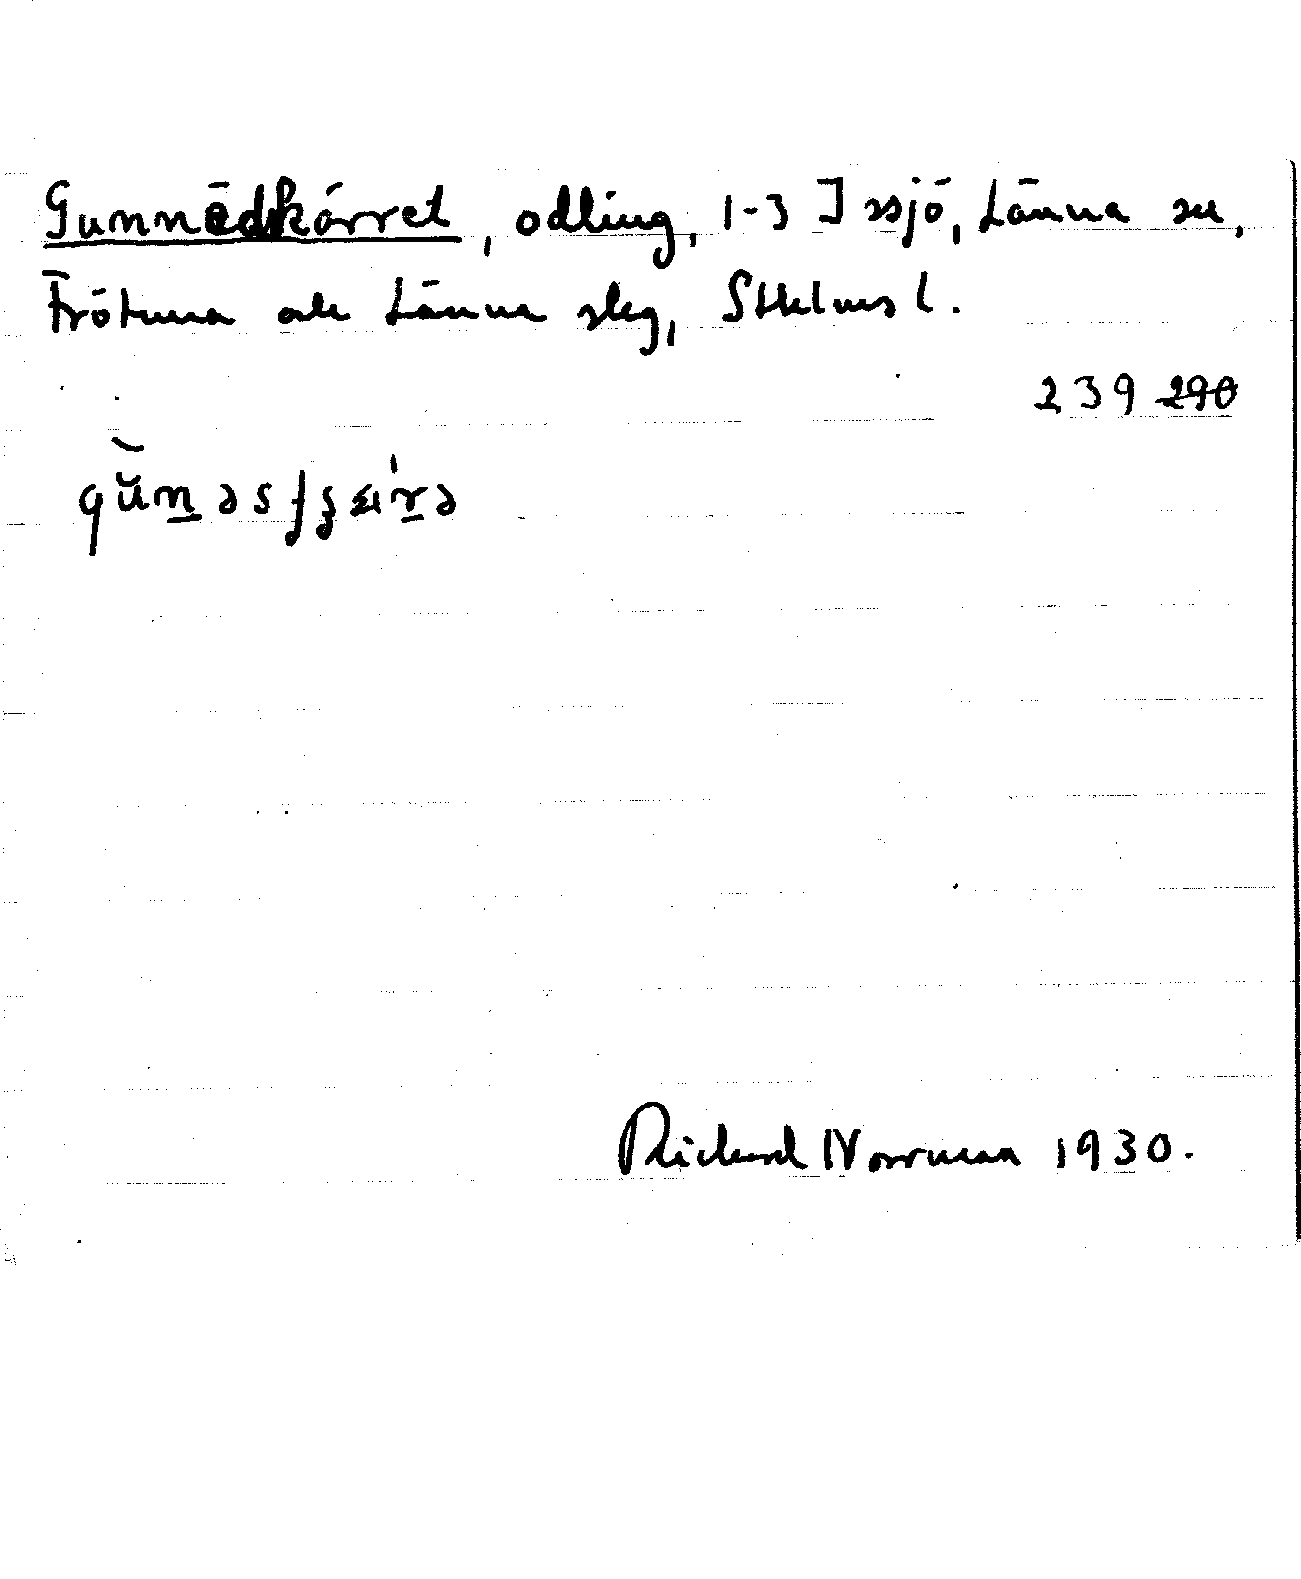 Gunnödkärret, odling, 1-3 Issjö, Länna sn,
Frötuna och Länna skg, Sthlms l.
239 290
Rickard Norrman 1930.